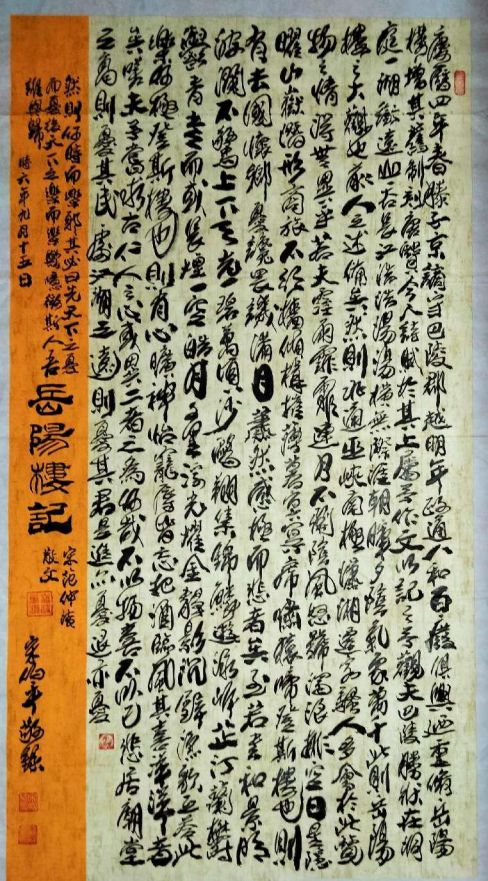 慶曆四年春滕子京謫守巴陵郡越明年政通人和百廢俱興迺重脩岳陽
樓增其舊制刻唐賢今人詩賦於其上屬予作文以記之予觀夫巴陵勝狀在洞
庭一湖銜遠山吞長江浩浩湯湯橫無際涯朝暉夕陰氣象萬千此則岳陽
樓之大觀也前人之述備矣然則北通巫峽南極瀟湘遷客騷人多會於此覽
物之情得無異乎若夫霪雨霏霏連月不開陰風怒號濁浪排空日星隱
曜山嶽潛形商旅不行檣傾楫摧薄暮冥冥虎嘯猿啼登斯樓也則
有去國懷鄉憂讒畏譏滿目蕭然感極而悲者矣至若春和景明
波瀾不驚上下天光一碧萬頃沙鷗翔集錦鱗游泳岸芷汀蘭鬱
鬱青青而或長煙一空皓月千里浮光耀金靜影沉璧漁歌互答此
樂何極登斯樓也則有心曠神怡寵辱皆忘把酒臨風其喜洋洋者
矣嗟夫予嘗求古仁人之心或異二者之為何哉不以物喜不以己悲居廟堂
之高則憂其民處江湖之遠則憂其君是進亦憂退亦憂
然則何時而樂耶其必曰先天下之憂
而憂後天下之樂而樂歟噫微斯人吾
誰與歸
時六年九月十五日
岳陽樓記
宋范仲淹
散文